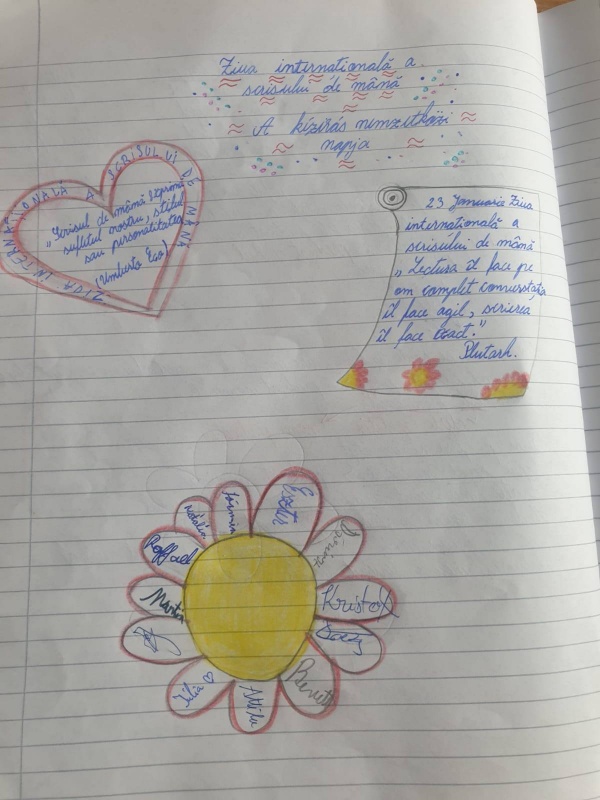 Ziua internatională a
scrisului de mână
A kézírás nemzetközi
napja
ZIUA INTERNATIONALĂ A SCRISULUI DE MÂNĂ
„Scrisul de mână exprimă
sufletul nostru, stilul
sau personalitatea
(Umberto Eco)
23 Januarie Ziua
internatională a
scrisului de mână
„Lectura îl face pe
om complet conversatia
îl face agil, scrierea
îl face exact."
Plutarh.
Eszter
Kristóf
Benett
Attila
Júlia
Martin
Raffael
Natália